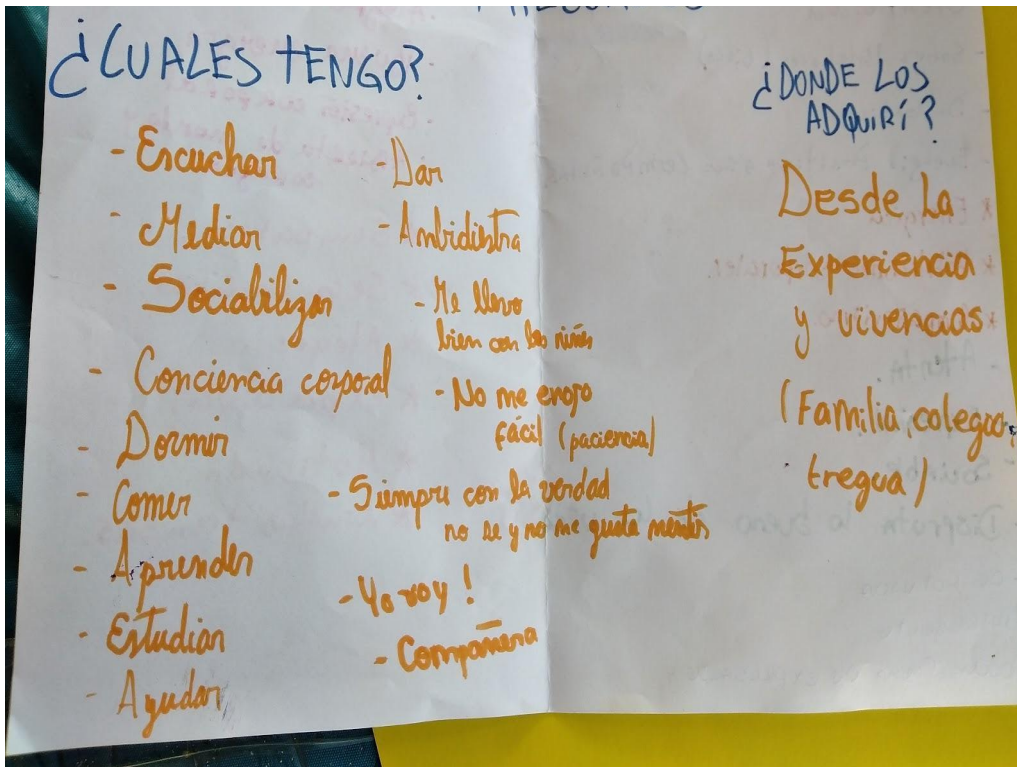 ¿CUALES TENGO?
- Escuchar
- Mediar
- Sociabilizar
- Conciencia corporal
- Dormir
- Comer
- Aprender
- Estudiar
- Ayudar
- Dar
- Ambidiestra
- Me llevo
bien con los niños
- No me enojo
fácil (paciencia)
- Siempre con la verdad
no se y no me gusta mentir
- Yo voy!
- Compañera
¿DONDE LOS
ADQUIRÍ?
Desde La
Experiencia
y vivencias
(Familia, colegas,
tregua)